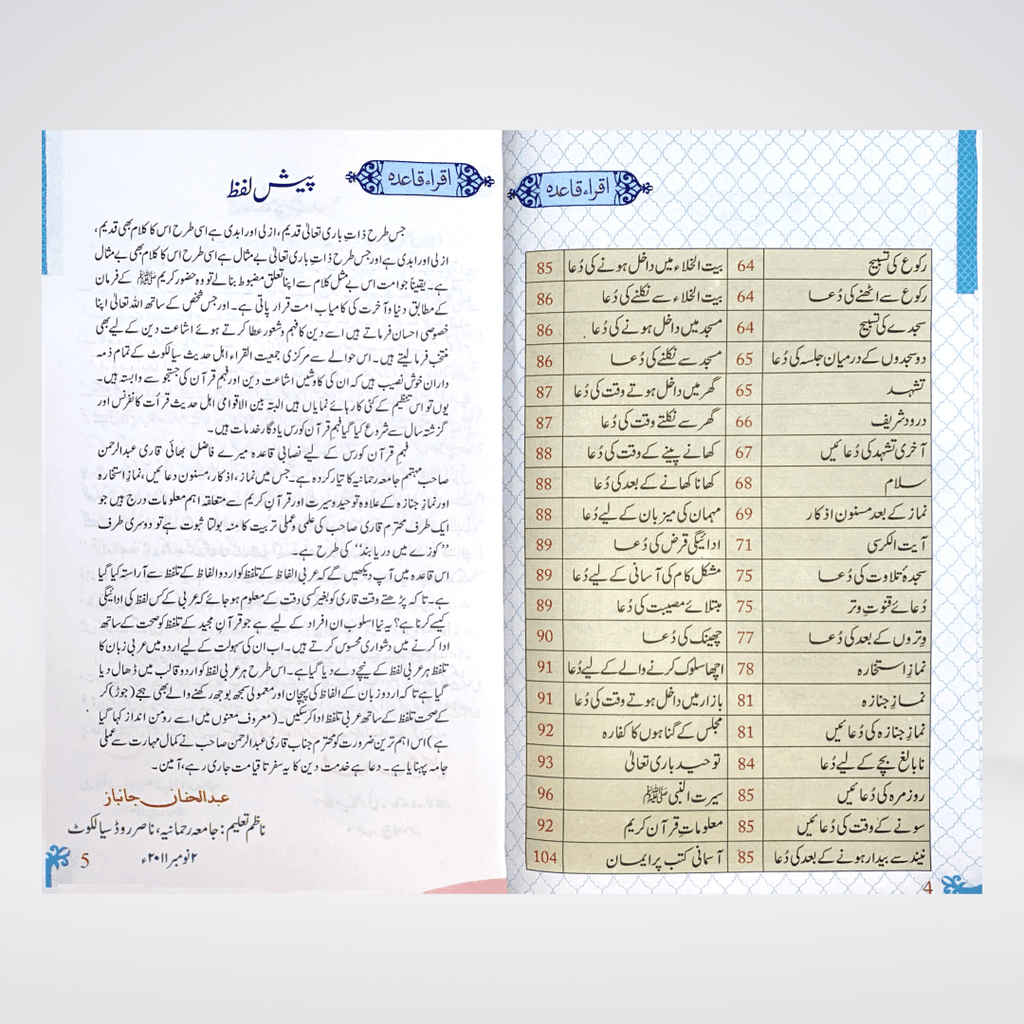 اقراء قاعدہ
رکوع کی تسبیح 64
رکوع سے اٹھنے کی دُعا 64
سجدے کی تسبیح 64
دو سجدوں کے درمیان جلسہ کی دُعا 65
تشہد 65
درود شریف 66
آخری تشہد کی دُعائیں 67
سلام 68
نماز کے بعد مسنون اذکار 69
آیت الکرسی 71
سجدۂ تلاوت کی دُعا 75
دُعائے قنوتِ وتر 75
وتروں کے بعد کی دُعا 77
نمازِ استخارہ 78
نمازِ جنازہ 81
نمازِ جنازہ کی دُعائیں 81
نابالغ بچے کے لیے دُعا 84
روزمرہ کی دُعائیں 85
سونے کے وقت کی دُعائیں 85
نیند سے بیدار ہونے کے بعد کی دُعا 85
بیت الخلاء میں داخل ہونے کی دُعا 85
بیت الخلاء سے نکلنے کی دُعا 86
مسجد میں داخل ہونے کی دُعا 86
مسجد سے نکلنے کی دُعا 86
گھر میں داخل ہوتے وقت کی دُعا 87
گھر سے نکلتے وقت کی دُعا 87
کھانے پینے کے وقت کی دُعا 88
کھانا کھانے کے بعد کی دُعا 88
مہمان کی میزبان کے لیے دُعا 88
ادائیگی قرض کی دُعا 89
مشکل کام کی آسانی کے لیے دُعا 89
مبتلائے مصیبت کی دُعا 89
چھینک کی دُعا 90
اچھا سلوک کرنے والے کے لیے دُعا 91
بازار میں داخل ہوتے وقت کی دُعا 91
مجلس کے گناہوں کا کفارہ 92
توحید باری تعالیٰ 93
سیرت النبی ﷺ 96
معلوماتِ قرآن کریم 92
آسمانی کتب پر ایمان 104
4
اقراء قاعدہ
پیش لفظ
جس طرح ذاتِ باری تعالیٰ قدیم، ازلی اور ابدی ہے اسی طرح اس کا کلام بھی قدیم،
ازلی اور ابدی ہے اور جس طرح ذاتِ باری تعالیٰ بے مثال ہے اسی طرح اس کا کلام بھی بے مثال
ہے۔ یقیناً جو امت اس بے مثل کلام سے اپنا تعلق مضبوط بنا لے تو وہ حضور کریم ﷺ کے فرمان
کے مطابق دنیا و آخرت کی کامیاب امت قرار پاتی ہے۔ اور جس شخص کے ساتھ اللہ تعالیٰ اپنا
خصوصی احسان فرماتے ہیں اسے دین کا فہم و شعور عطا کرتے ہوئے اشاعت دین کے لیے بھی
منتخب فرما لیتے ہیں۔ اس حوالے سے مرکزی جمعیت القراء اہل حدیث سیالکوٹ کے تمام ذمہ
داران خوش نصیب ہیں کہ ان کی کاوشیں اشاعت دین اور فہم قرآن کی جستجو سے وابستہ ہیں۔
یوں تو اس تنظیم کے کئی کارہائے نمایاں ہیں البتہ بین الاقوامی اہل حدیث قرأت کانفرنس اور
گزشتہ سال سے شروع کیا گیا فہم قرآن کورس یادگار خدمات ہیں۔
فہم قرآن کورس کے لیے نصابی قاعدہ میرے فاضل بھائی قاری عبدالرحمن
صاحب مہتمم جامعہ رحمانیہ کا تیار کردہ ہے۔ جس میں نماز، اذکار، مسنون دعائیں، نمازِ استخارہ
اور نماز جنازہ کے علاوہ توحید و سیرت اور قرآنِ کریم سے متعلقہ اہم معلومات درج ہیں جو
ایک طرف محترم قاری صاحب کی علمی و عملی تربیت کا منہ بولتا ثبوت ہے تو دوسری طرف
”کوزے میں دریا بند“ کی طرح ہے۔
اس قاعدہ میں آپ دیکھیں گے کہ عربی الفاظ کے تلفظ کو اردو الفاظ کے تلفظ سے آراستہ کیا گیا
ہے۔ تاکہ پڑھتے وقت قاری کو بغیر کسی دقت کے معلوم ہو جائے کہ عربی کے کس لفظ کی ادائیگی
کیسے کرنا ہے؟ یہ نیا اسلوب ان افراد کے لیے ہے جو قرآن مجید کے تلفظ کو صحت کے ساتھ
ادا کرنے میں دشواری محسوس کرتے ہیں۔ اب ان کی سہولت کے لیے اردو میں عربی زبان کا
تلفظ ہر عربی لفظ کے نیچے دے دیا گیا ہے۔ اس طرح ہر عربی لفظ کو اردو قالب میں ڈھال دیا
گیا ہے تاکہ اردو زبان کے الفاظ کی پہچان اور معمولی سمجھ بوجھ رکھنے والے بھی ہجے (جوڑ) کر
کے صحت تلفظ کے ساتھ عربی تلفظ ادا کر سکیں۔ (معروف معنوں میں اسے رومن انداز کہا گیا
ہے) اس اہم ترین ضرورت کو محترم جناب قاری عبدالرحمن صاحب نے کمال مہارت سے عملی
جامہ پہنایا ہے۔ دعا ہے خدمت دین کا یہ سفر تا قیامت جاری رہے، آمین۔
عبدالحنان جانباز
ناظم تعلیم: جامعہ رحمانیہ، ناصر روڈ سیالکوٹ
۲ نومبر ۲۰۱۱ء
5